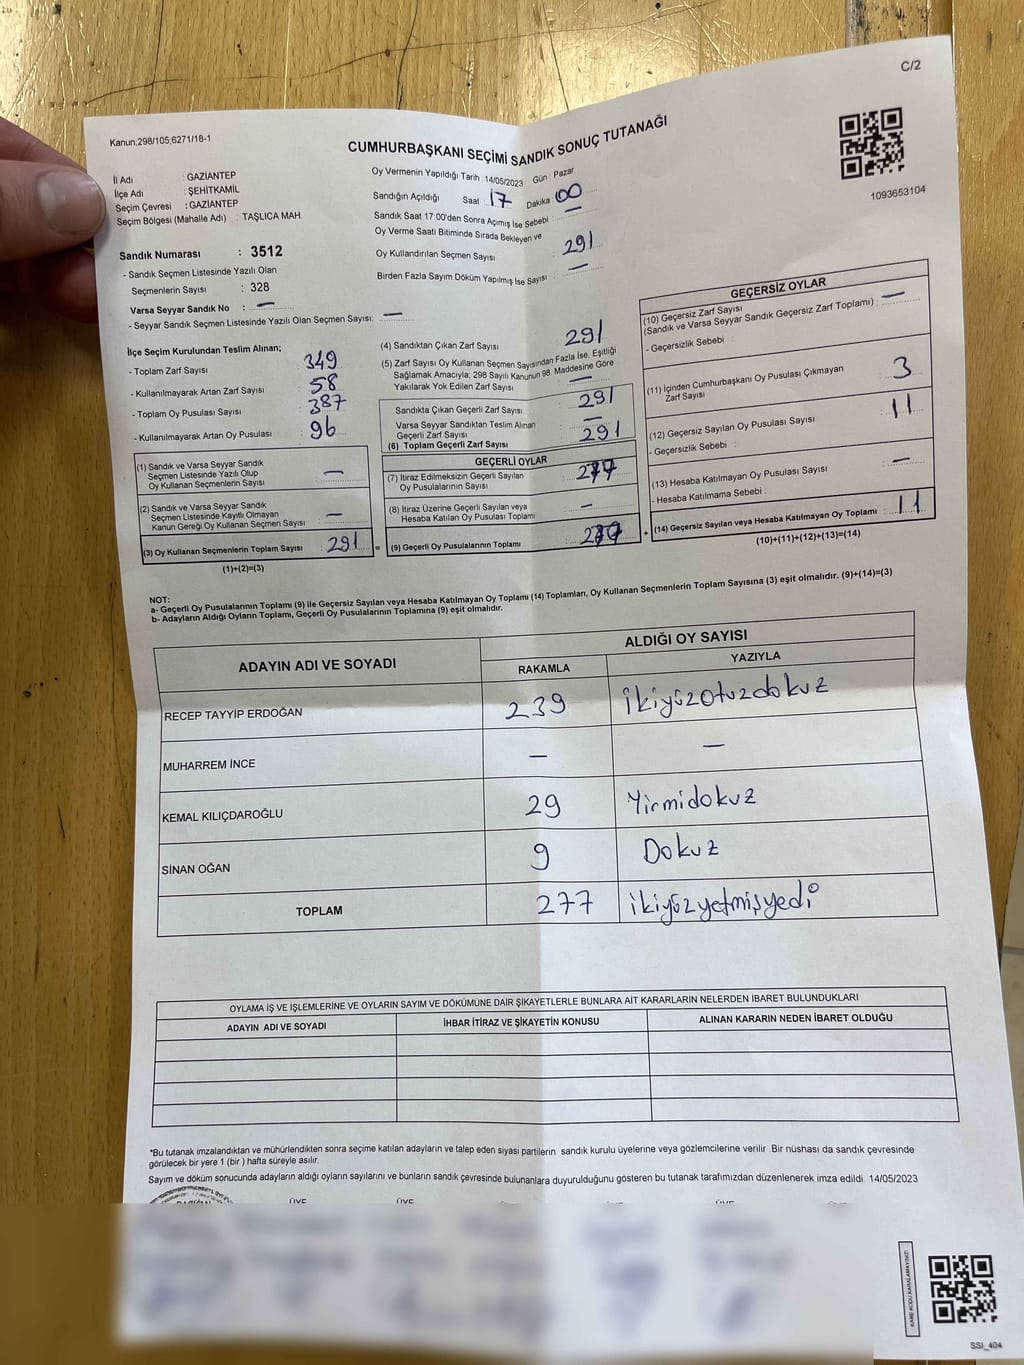 C/2
Kanun;298/105;6271/18-1
CUMHURBAŞKANI SEÇİMİ SANDIK SONUÇ TUTANAĞI
1093653104
İl Adı : GAZİANTEP
İlçe Adı : ŞEHİTKAMİL
Seçim Çevresi : GAZİANTEP
Seçim Bölgesi (Mahalle Adı) : TAŞLICA MAH.
Sandık Numarası : 3512
- Sandık Seçmen Listesinde Yazılı Olan
Seçmenlerin Sayısı : 328
Varsa Seyyar Sandık No : —
- Seyyar Sandık Seçmen Listesinde Yazılı Olan Seçmen Sayısı: —
Oy Vermenin Yapıldığı Tarih : 14/05/2023 Gün : Pazar
Sandığın Açıldığı Saat : 17 Dakika : 00
Sandık Saat 17:00'den Sonra Açımış İse Sebebi : —
Oy Verme Saati Bitiminde Sırada Bekleyen ve
Oy Kullandırılan Seçmen Sayısı : 291
Birden Fazla Sayım Döküm Yapılmış İse Sayısı : —
İlçe Seçim Kurulundan Teslim Alınan;
- Toplam Zarf Sayısı : 349
- Kullanılmayarak Artan Zarf Sayısı : 58
- Toplam Oy Pusulası Sayısı : 387
- Kullanılmayarak Artan Oy Pusulası : 96
(1) Sandık ve Varsa Seyyar Sandık
Seçmen Listesinde Yazılı Olup
Oy Kullanan Seçmenlerin Sayısı : —
(2) Sandık ve Varsa Seyyar Sandık
Seçmen Listesinde Kayıtlı Olmayan
Kanun Gereği Oy Kullanan Seçmen Sayısı : —
(3) Oy Kullanan Seçmenlerin Toplam Sayısı : 291 =
(1)+(2)=(3)
(4) Sandıktan Çıkan Zarf Sayısı : 291
(5) Zarf Sayısı Oy Kullanan Seçmen Sayısından Fazla İse, Eşitliği
Sağlamak Amacıyla; 298 Sayılı Kanunun 98. Maddesine Göre
Yakılarak Yok Edilen Zarf Sayısı : —
Sandıkta Çıkan Geçerli Zarf Sayısı : 291
Varsa Seyyar Sandıktan Teslim Alınan
Geçerli Zarf Sayısı : —
(6) Toplam Geçerli Zarf Sayısı : 291
GEÇERLİ OYLAR
(7) İtiraz Edilmeksizin Geçerli Sayılan
Oy Pusulalarının Sayısı : 277
(8) İtiraz Üzerine Geçerli Sayılan veya
Hesaba Katılan Oy Pusulası Toplamı : —
(9) Geçerli Oy Pusulalarının Toplamı : +
GEÇERSİZ OYLAR
(10) Geçersiz Zarf Sayısı
(Sandık ve Varsa Seyyar Sandık Geçersiz Zarf Toplamı) : —
- Geçersizlik Sebebi :
(11) İçinden Cumhurbaşkanı Oy Pusulası Çıkmayan
Zarf Sayısı : 3
(12) Geçersiz Sayılan Oy Pusulası Sayısı : 11
- Geçersizlik Sebebi :
(13) Hesaba Katılmayan Oy Pusulası Sayısı : —
- Hesaba Katılmama Sebebi :
(14) Geçersiz Sayılan veya Hesaba Katılmayan Oy Toplamı : 11
(10)+(11)+(12)+(13)=(14)
NOT:
a- Geçerli Oy Pusulalarının Toplamı (9) ile Geçersiz Sayılan veya Hesaba Katılmayan Oy Toplamı (14) Toplamları, Oy Kullanan Seçmenlerin Toplam Sayısına (3) eşit olmalıdır. (9)+(14)=(3)
b- Adayların Aldığı Oyların Toplamı, Geçerli Oy Pusulalarının Toplamına (9) eşit olmalıdır.
ADAYIN ADI VE SOYADI
ALDIĞI OY SAYISI
RAKAMLA YAZIYLA
RECEP TAYYİP ERDOĞAN 239 İkiyüzotuzdokuz
MUHARREM İNCE — —
KEMAL KILIÇDAROĞLU 29 Yirmidokuz
SİNAN OĞAN 9 Dokuz
TOPLAM 277 ikiyüzyetmişyedi
OYLAMA İŞ VE İŞLEMLERİNE VE OYLARIN SAYIM VE DÖKÜMÜNE DAİR ŞİKAYETLERLE BUNLARA AİT KARARLARIN NELERDEN İBARET BULUNDUKLARI
ADAYIN ADI VE SOYADI İHBAR İTİRAZ VE ŞİKAYETİN KONUSU ALINAN KARARIN NEDEN İBARET OLDUĞU
*Bu tutanak imzalandıktan ve mühürlendikten sonra seçime katılan adayların ve talep eden siyasi partilerin sandık kurulu üyelerine veya gözlemcilerine verilir. Bir nüshası da sandık çevresinde
görülecek bir yere 1 (bir ) hafta süreyle asılır.
Sayım ve döküm sonucunda adayların aldığı oyların sayılarını ve bunların sandık çevresinde bulunanlara duyurulduğunu gösteren bu tutanak tarafımızdan düzenlenerek imza edildi. 14/05/2023
ÜYE ÜYE ÜYE
KARE KODU KARALAMAYINIZ!
SSI_404